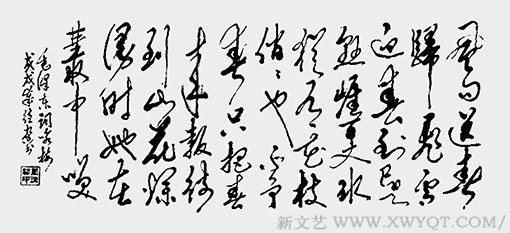 風雨送春
歸飛雪
迎春到已是
懸崖百丈冰
猶有花枝
俏俏也不争
春只把春
来報待
到山花爛
漫時她在
叢中笑
毛泽东詞咏梅
戊戌
新文艺 WWW.XWYQT.COM/